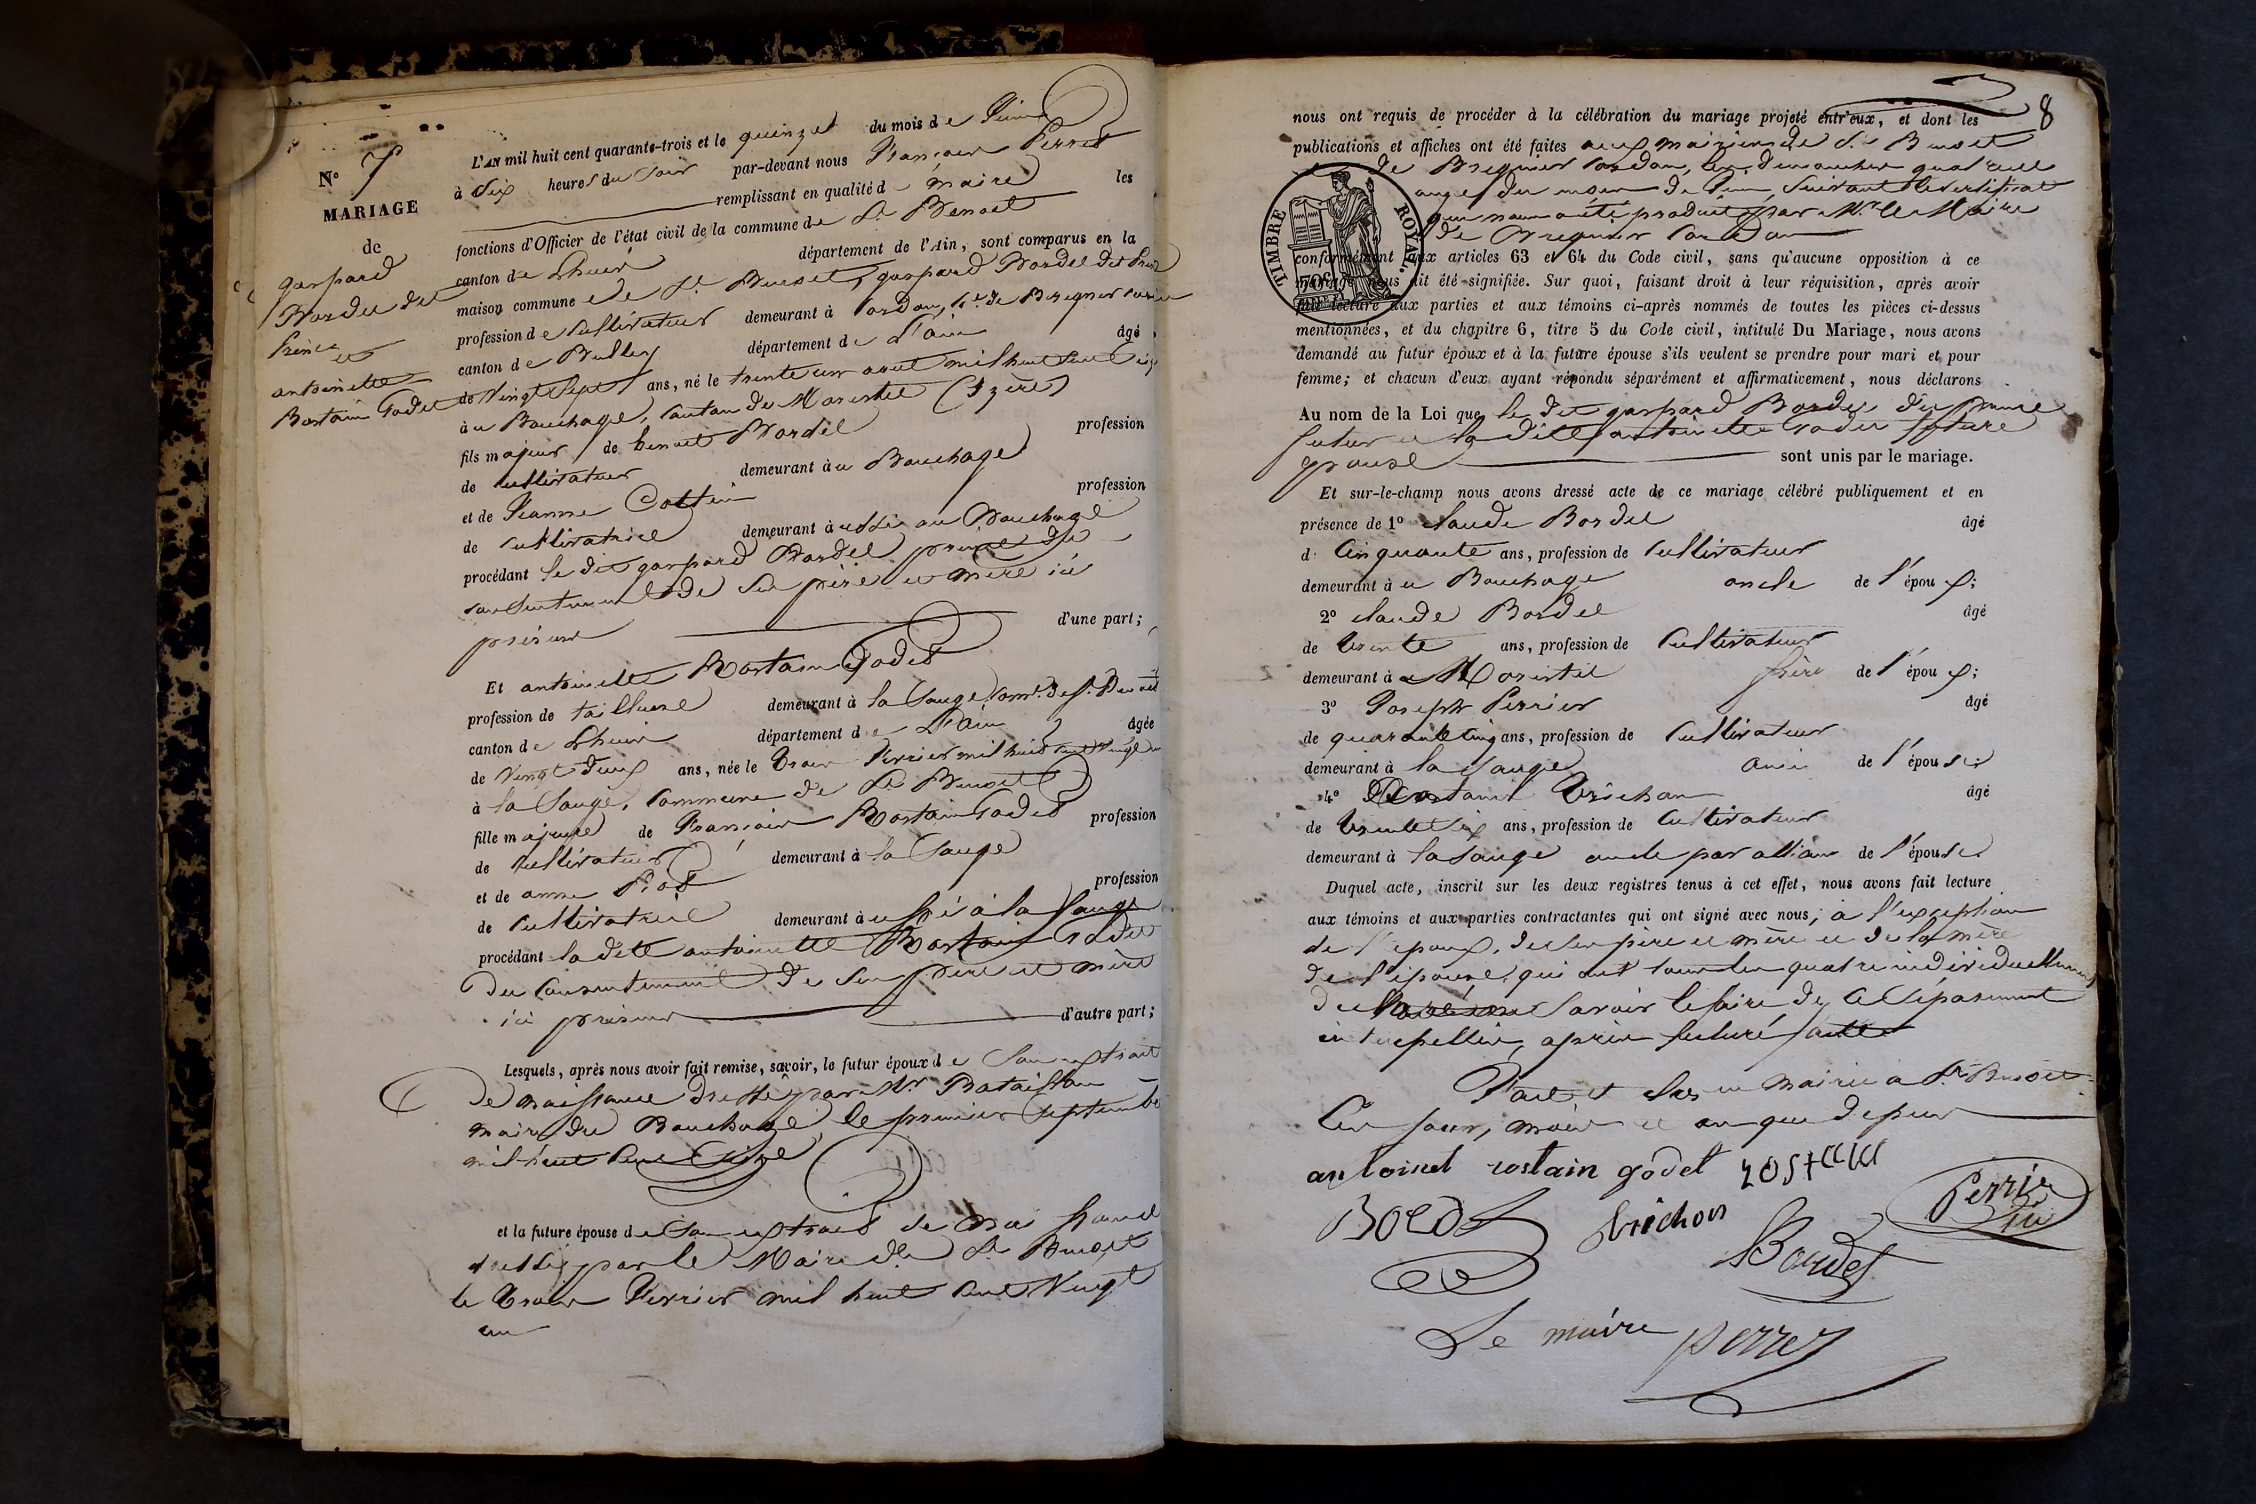 N° 7
MARIAGE
de
gaspard
Bordel dit
Prince
et
antoinette
Rostain Godet
L'AN mil huit cent quarante-trois et le quinze du mois de Juin
à six heures du soir par-devant nous François Perret
remplissant en qualité de maire les
fonctions d'Officier de l'état civil de la commune de St Benoit
canton de Lhuis département de l'Ain, sont comparus en la
maison commune de St Benoit, gaspard Bordel dit Prince
profession de cultivateur demeurant à Cordon, Cne de Bregnier Cordon
canton de Belley département de L'ain âgé
de vingt sept ans, né le trente un aout mil huit cent quinze
à u Bouchage, canton de Morestel (Izère)
fils majeur de benoit Bordel profession
de cultivateur demeurant à u Bouchage
et de Jeanne Cottin profession
de cultivatrice demeurant à ussi au Bouchage
procédant le dit gaspard Bordel prince du
consentement de ses père et mère ici
présens d'une part;
Et antoinette Rostain Godet
profession de tailleuse demeurant à la Sauge, comne de St Benoit
canton de Lhuis département de L'Ain âgée
de vingt deux ans, née le trois Fevrier mil huit cent vingt un
à la Sauge, commune de St Benoit
fille majeure de François Rostain Godet profession
de cultivateur demeurant à la Sauge
et de anne Piot profession
de cultivatrice demeurant à ussi à la Sauge
procédant la dite antoinette Rostain Godet
du consentement de ses père et mère
ici présens d'autre part;
Lesquels, après nous avoir fait remise, savoir, le futur époux de son extrait
de naissance dressé par Mr Bataillon
maire du Bouchage, le premier septembre
mil huit cent quinze
et la future épouse de son extrait de naissance
dressé par le Maire de St Benoit
le trois Fevrier mil huit cent vingt
un
8
nous ont requis de procéder à la célébration du mariage projeté entr'eux, et dont les
publications et affiches ont été faites aux mairies de St Benoit
de Bregnier Cordon, les dimanches quatre et
onze du mois de Juin, suivant le certificat
qui nous a été produit par Mr le Maire
de Bregnier Cordon
TIMBRE ROYAL.
conformément aux articles 63 et 64 du Code civil, sans qu'aucune opposition à ce
mariage nous ait été signifiée. Sur quoi, faisant droit à leur réquisition, après avoir
fait lecture aux parties et aux témoins ci-après nommés de toutes les pièces ci-dessus
mentionnées, et du chapitre 6, titre 5 du Code civil, intitulé Du Mariage, nous avons
demandé au futur époux et à la future épouse s'ils veulent se prendre pour mari et pour
femme; et chacun d'eux ayant répondu séparément et affirmativement, nous déclarons
Au nom de la Loi que le dit gaspard Bordel dit prince
futur et la dite antoinette Godet future
epouse sont unis par le mariage.
Et sur-le-champ nous avons dressé acte de ce mariage célébré publiquement et en
présence de 1° Claude Bordel âgé
d Cinquante ans, profession de cultivateur
demeurant à u Bouchage oncle de l'époux;
2° Claude Bordel âgé
de trente ans, profession de cultivateur
demeurant à Morestel frère de l'époux;
3° Joseph Perrier âgé
de quarante cinq ans, profession de cultivateur
demeurant à la Sauge ami de l'épouse;
4° Trichon âgé
de trente six ans, profession de cultivateur
demeurant à la Sauge oncle par alliance de l'épouse.
Duquel acte, inscrit sur les deux registres tenus à cet effet, nous avons fait lecture
aux témoins et aux parties contractantes qui ont signé avec nous; à l'exception
de l'époux, de ses père et mère et de la mère
de l'épouse, qui ont tous les quatre individuellement
savoir le faire de ce séparément
interpellés, après lecture faite
Fait et clos en mairie à St Benoit
Les jour, mois et an que dessus
antoinet rostain godet rostain
BORDEL trichon Perrier
Bordel
Le maire perret